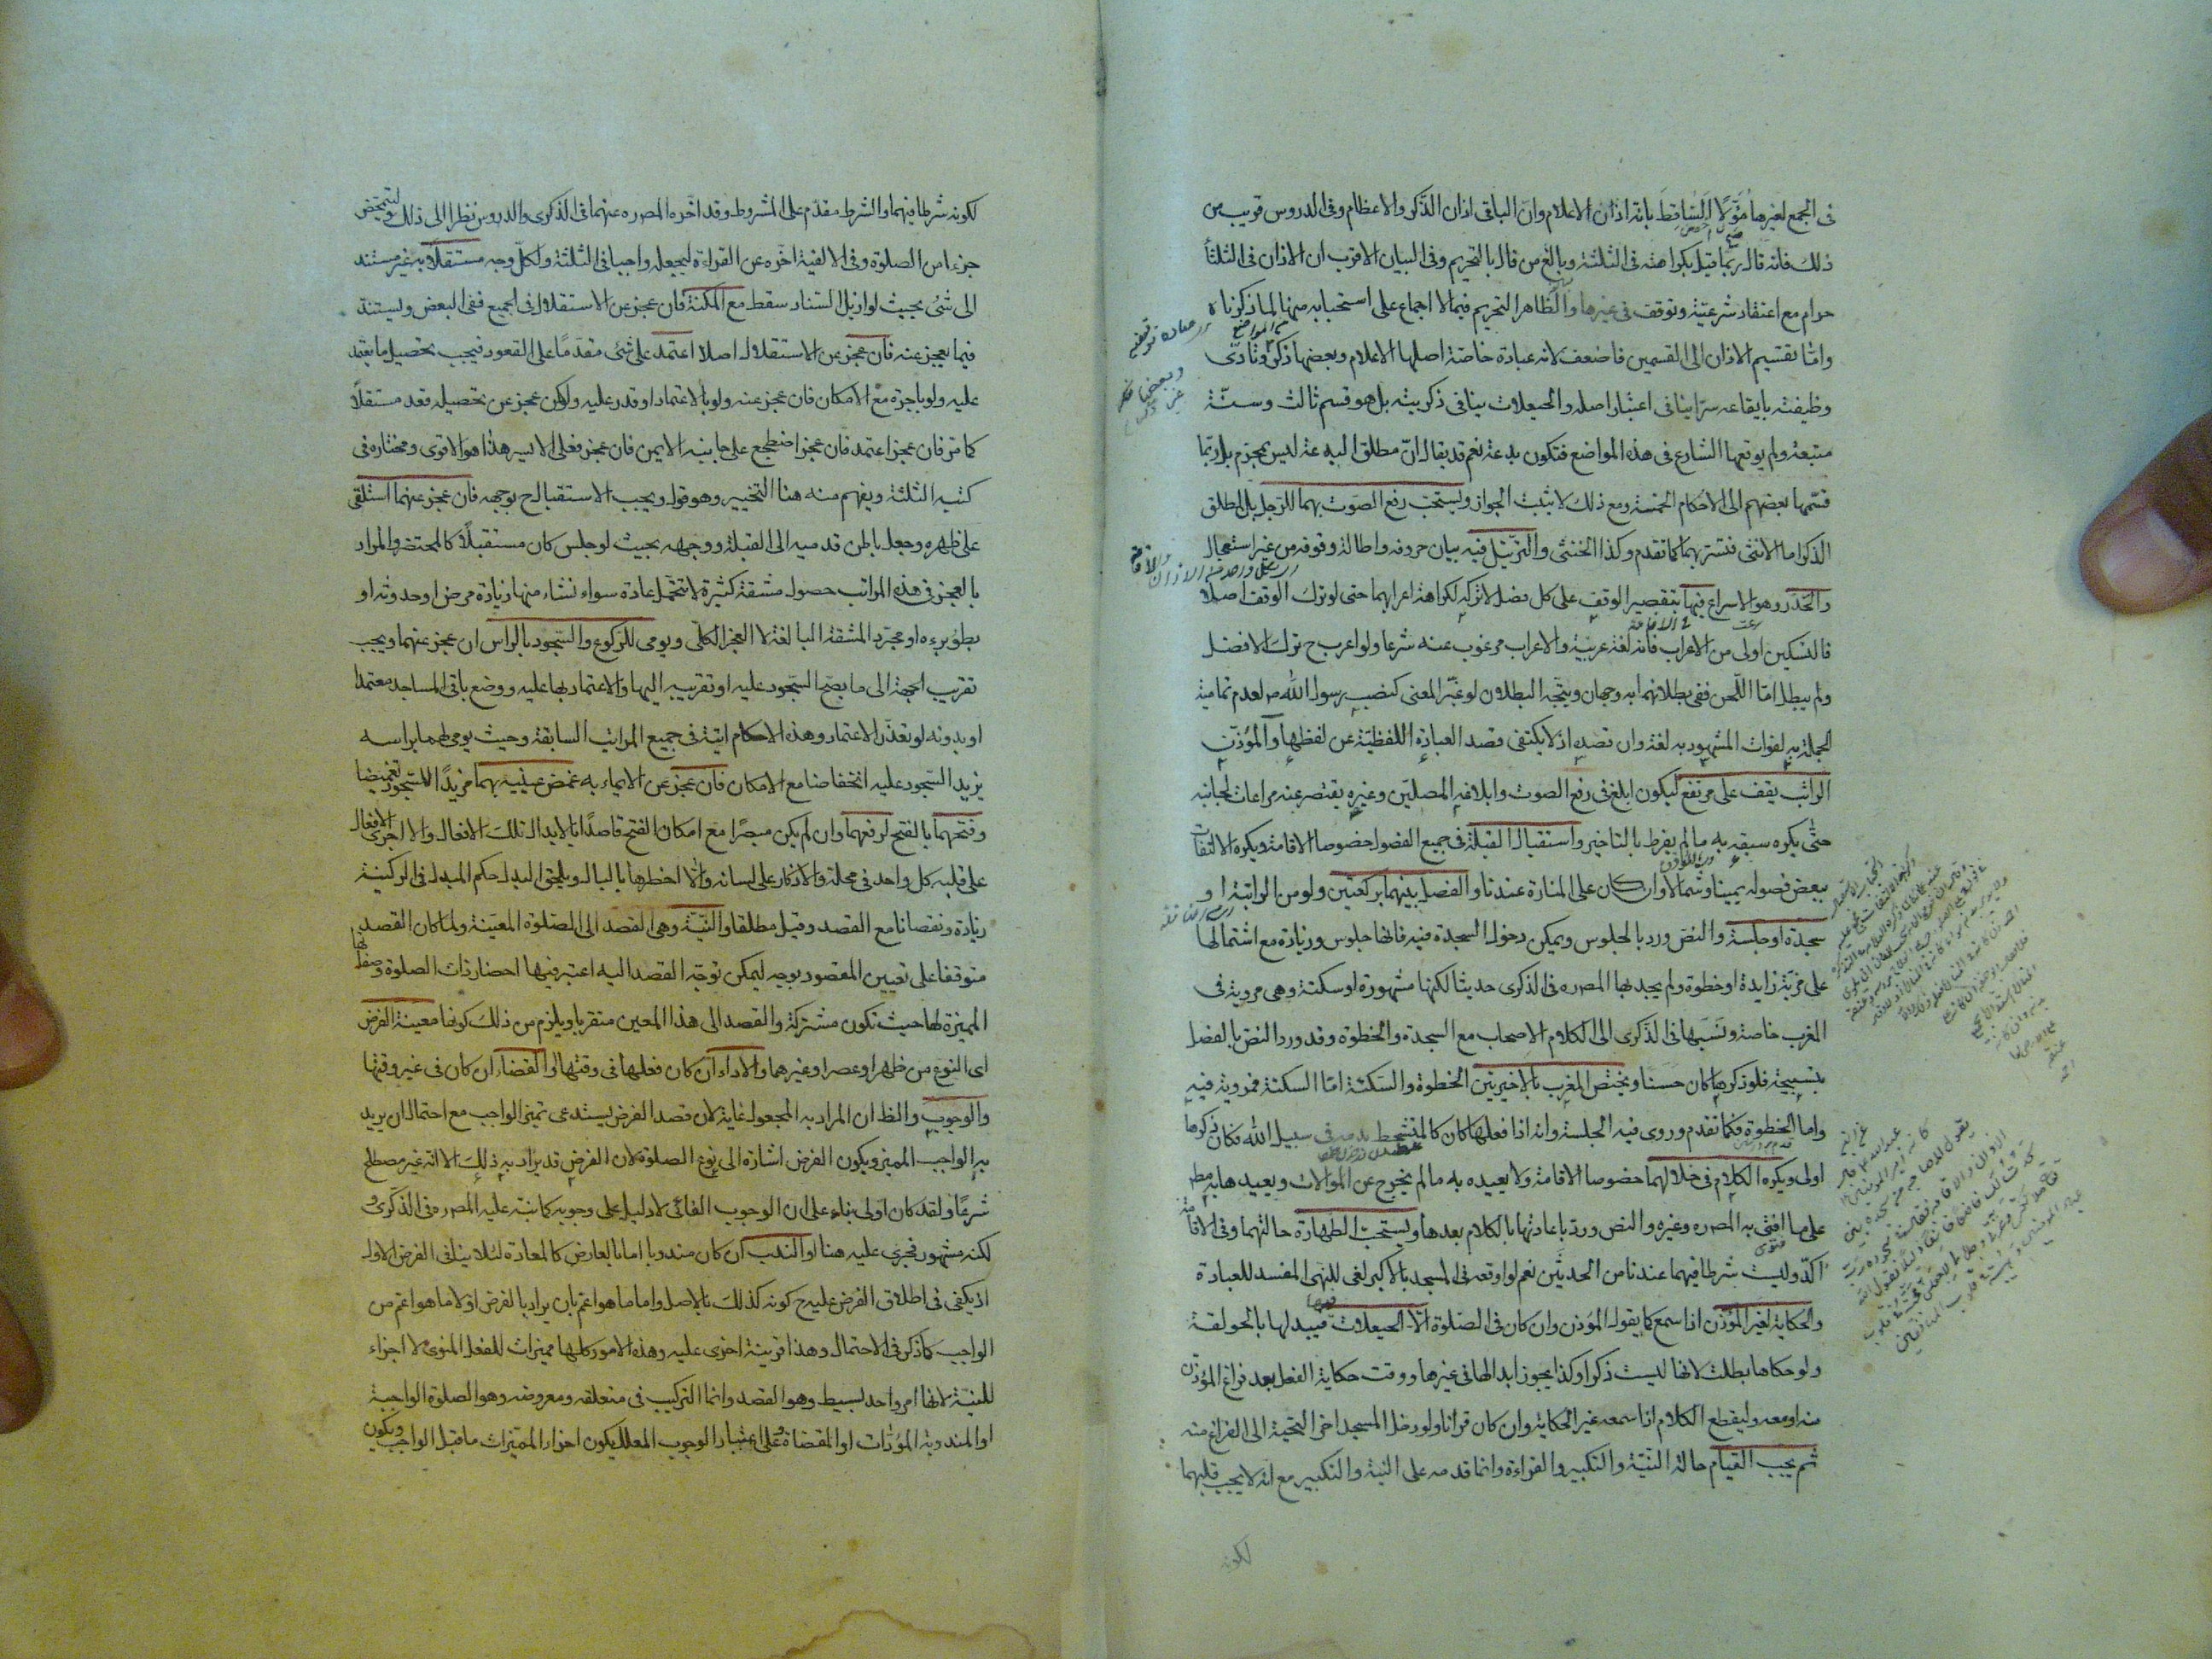 فى الجمع لغيرها مؤولا الساقط بانه اذان الاعلام وان الباقى اذان الذكر والاعظام وفى الدروس قريب من
ذلك فانه قال ربما قيل بكراهته فى الثلثة وبالغ من قال بالتحريم وفى البيان الاقرب ان الاذان فى الثلثة
حرام مع اعتقاد شرعيته وتوقف فى غيرها والظاهر التحريم فيما لا اجماع على استحبابه منها لما ذكرناه
واما تقسيم الاذان الى القسمين فاضعف لانه عبادة خاصة اصلها الاعلام وبعضها ذكر وتادى
وظيفته بايقاعه سرا ينافى اعتبار اصله والحيعلات ينافى ذكريته بل هو قسم ثالث وسنة
متبعة ولم يوقعها الشارع فى هذه المواضع فتكون بدعة نعم قد يقال ان مطلق البدعة ليس بمحرم بل ربما
قسمها بعضهم الى الاحكام الخمسة ومع ذلك لا يثبت الجواز ويستحب رفع الصوت بهما للرجل بل لمطلق
الذكر اما الانثى فتسر بهما كما تقدم وكذا الخنثى والترتيل فيه ببيان حروفه واطالة وقوفه من غير استعجال
والحدر وهو الاسراع فيها بتقصير الوقف على كل فصل لا تركه لكراهة اعرابهما حتى لو ترك الوقف اصلا
فالتسكين اولى من الاعراب فانه لغة عربية والاعراب مرغوب عنه شرعا ولو اعرب ح ترك الافضل
ولم يبطل اما اللحن ففى بطلانهما به وجهان ويتجه البطلان لو غير المعنى كنصب رسول الله ص لعدم تمامية
الجملة به لفوات المشهود به لغة وان قصده اذ لا يكتفى قصد العبادة اللفظية عن لفظها والمؤذن
الراتب يقف على مرتفع ليكون ابلغ فى رفع الصوت وابلاغه المصلين وغيره يقتصر عنه مراعات لجانبه
حتى يكره سبقه به ما لم يفرط بالتاخير واستقبال القبلة فى جميع الفصول خصوصا الاقامة ويكره الالتفات
ببعض فصوله يمينا وشمالا وان كان على المنارة عندنا والفصل بينهما بركعتين ولو من الراتبة او
سجدة او جلسة والنص ورد بالجلوس ويمكن دخول السجدة فيه فانها جلوس وزيادة مع اشتمالها
على مزية زايدة او خطوة ولم يجد بها المصره فى الذكرى حديثا لكنها مشهورة او سكتة وهى مروية فى
المغرب خاصة ونسبها فى الذكرى الى كلام الاصحاب مع السجدة والخطوة وقد ورد النص بالفصل
بتسبيحة فلو ذكرها كان حسنا ويختص المغرب بالاخيرتين الخطوة والسكتة اما السكتة فمروية فيه
واما الخطوة فكما تقدم وروى فيه الجلسة وانه اذا فعلها كان كالمتشحط بدمه فى سبيل الله فكان ذكرها
اولى ويكره الكلام فى خلالهما خصوصا الاقامة ولا يعيده به ما لم يخرج عن الموالات ويعيدها به مط
على ما افتى به المصره وغيره والنص ورد باعادتها بالكلام بعدها ويستحب الطهارة حالتهما وفى الاقامة
اكد وليست شرطا فيهما عندنا من الحدثين نعم لو اوقعه فى المسجد بالاكبر لغى للنهى المفسد للعبادة
والحكاية لغير المؤذن اذا سمع كما يقول المؤذن وان كان فى الصلوة الا الحيعلات فيبدلها بالحولقة
ولو حكاها بطلت لانها ليست ذكرا وكذا يجوز ابدالها فى غيرها ووقت حكاية الفصل بعد فراغ المؤذن
منه او معه وليقطع الكلام اذا سمعه غير الحكاية وان كان قرانا ولو دخل المسجد اخر التحية الى الفراغ منه
ثم يجب القيام حالة النية والتكبير والقراءة وانما قدمه على النية والتكبير مع انه لا يجب قبلهما
لكونه
لكونه شرطا فيهما والشرط مقدم على المشروط وقد اخره المصره عنهما فى الذكرى والدروس نظرا الى ذلك وليتمحض
جزءا من الصلوة وفى الالفية اخره عن القراءة ليجعله واجبا فى الثلثة ولكل وجه مستقلا به غير مستند
الى شئ بحيث لو ازيل السناد سقط مع المكنة فان عجز عن الاستقلال فى الجميع ففى البعض ويستند
فيما يعجز عنه فان عجز عن الاستقلال اصلا اعتمد على شئ مقدما على القعود فيجب تحصيل ما يعتمد
عليه ولو باجرة مع الامكان فان عجز عنه ولو بالاعتماد او قدر عليه ولكن عجز عن تحصيله قعد مستقلا
كما مر فان عجز اعتمد فان عجز اضطجع على جانبه الايمن فان عجز فعلى الايسر هذا هو الاقوى ومختاره فى
كتبه الثلثة ويفهم منه هنا التخيير وهو قول ويجب الاستقبال ح بوجهه فان عجز عنهما استلقى
على ظهره وجعل باطن قدميه الى القبلة ووجهه بحيث لو جلس كان مستقبلا كالمحتضر والمراد
بالعجز فى هذه المراتب حصول مشقة كثيرة لا تتحمل عادة سواء نشاء منها زيادة مرض او حدوثه او
بطؤ برءه او مجرد المشقة البالغة لا العجز الكلى ويومى للركوع والسجود بالراس ان عجز عنهما ويجب
تقريب الجبهة الى ما يصح السجود عليه او تقريبه اليها والاعتماد بها عليه ووضع باقى المساجد معتمدا
او بدونه لو تعذر الاعتماد وهذه الاحكام اتية فى جميع المراتب السابقة وحيث يومى لهما براسه
يزيد السجود عليه انخفاضا مع الامكان فان عجز عن الايماء به غمض عينيه بهما مزيدا للسجود تغميضا
وفتحهما بالفتح لرفعهما وان لم يكن مبصرا مع امكان الفتح قاصدا بالابدال تلك الافعال والا اجرى الافعال
على قلبه كل واحد فى محله والاذكار على لسانه والا اخطرها بالبال ويلحق البدل حكم المبدل فى الركنية
زيادة ونقصانا مع القصد وقيل مطلقا والنية وهى القصد الى الصلوة المعينة ولما كان القصد
متوقفا على تعيين المقصود بوجه ليمكن توجه القصد اليه اعتبر فيها احضار ذات الصلوة وصفاتها
المميزة لها حيث تكون مشتركة والقصد الى هذا المعين متقربا ويلزم من ذلك كونها معينة الفرض
اى النوع من ظهر او عصر او غيرهما والاداء ان كان فعلها فى وقتها او القضاء ان كان فى غير وقتها
والوجوب والظ ان المراد به المجعول غاية لان قصد الفرض يستدعى تميز الواجب مع احتمال ان يريد
به الواجب المميز ويكون الفرض اشارة الى نوع الصلوة لان الفرض قد يراد به ذلك الا انه غير مصطلح
شرعا ولقد كان اولى بناء على ان الوجوب الغائى لا دليل على وجوبه كما نبه عليه المصره فى الذكرى و
لكنه مشهور فجرى عليه هنا او الندب ان كان مندوبا اما بالعارض كالمعادة لئلا ينافى الفرض الاول
اذ يكفى فى اطلاق الفرض عليه ح كونه كذلك بالاصل واما ما هو اعم بان يراد بالفرض اولا ما هو اعم من
الواجب كما ذكر فى الاحتمال وهذا قرينة اخرى عليه وهذه الامور كلها مميزات للفعل المنوى لا اجزاء
للنية لانها امر واحد بسيط وهو القصد وانما التركيب فى متعلقه ومعروضه وهو الصلوة الواجبة
او المندوبة المؤداة او المقضاة وعلى اعتبار الوجوب المعلل يكون اخر المميزات ما قبل الواجب ويكون